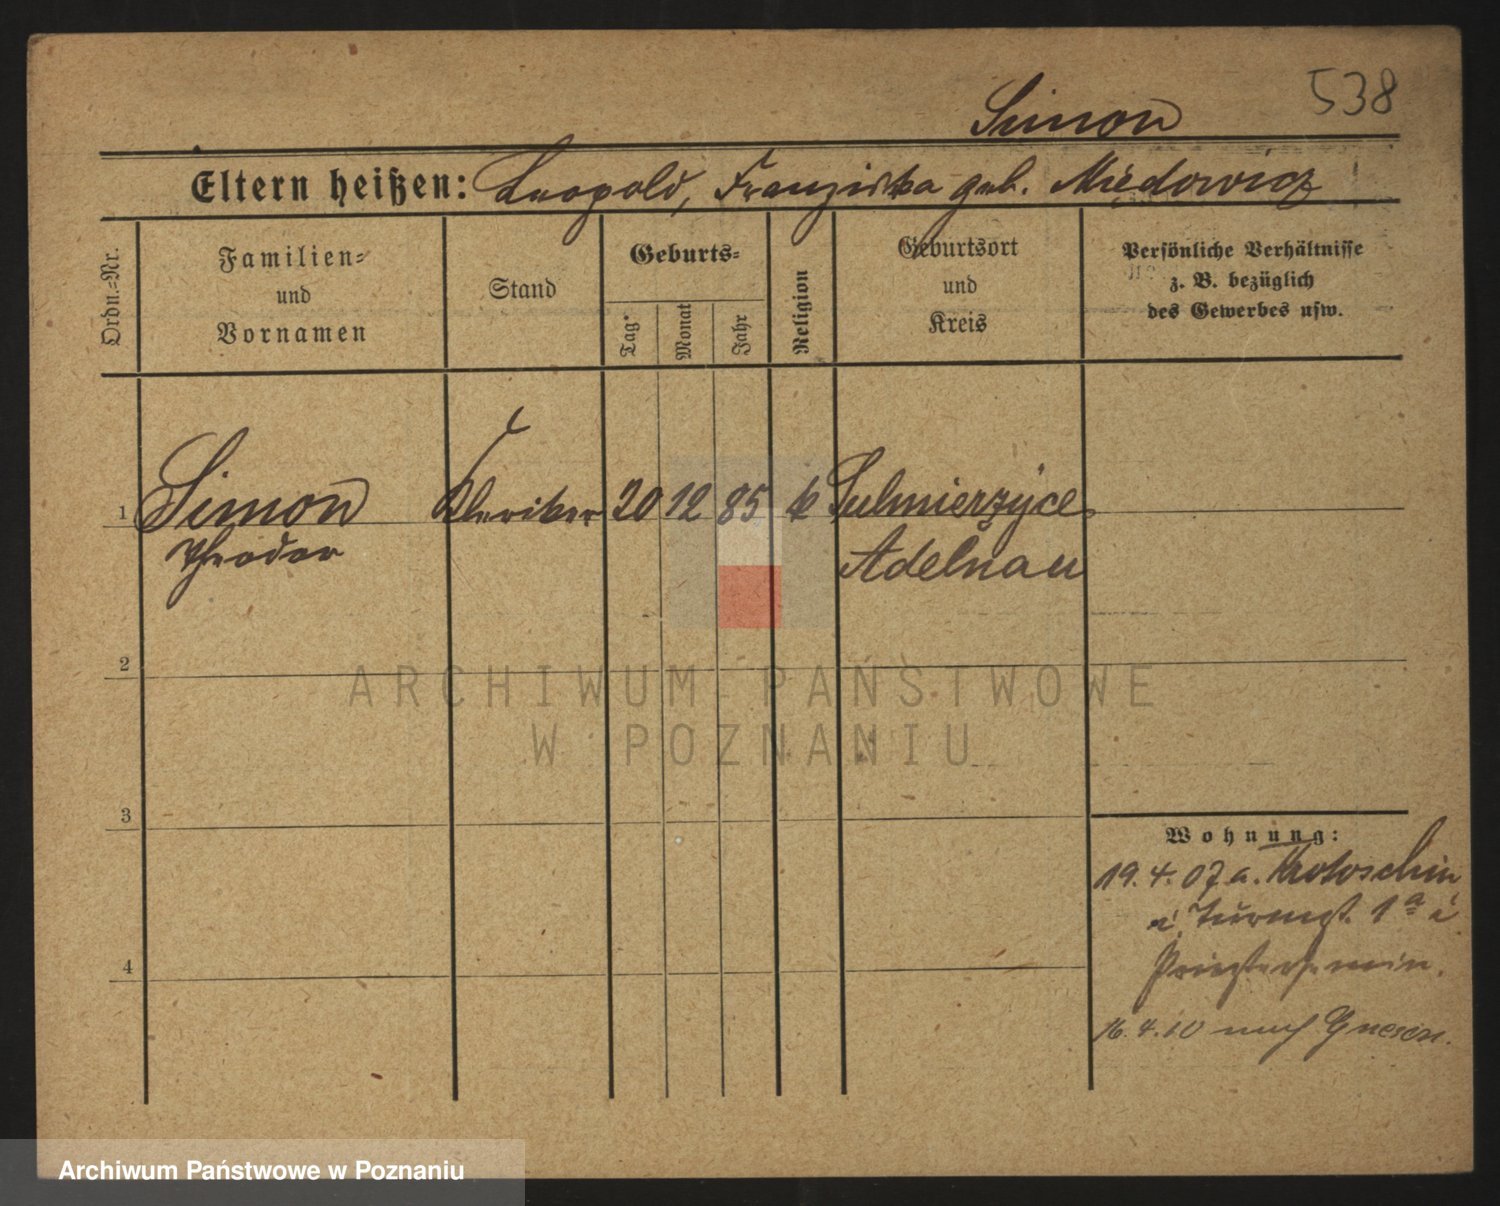 Simon 538
Eltern heißen: Leopold, Franziska geb. Miedowicz
Ordn.-Nr.
Familien-
und
Vornamen
Stand
Geburts-
Tag
Monat
Jahr
Religion
Geburtsort
und
Kreis
Persönliche Verhältnisse
z. B. bezüglich
des Gewerbes usw.
1 Simon Kleriker 20 12 85 k Sulmierzyce
Theodor Adelnau
2
ARCHIWUM PAŃSTWOWE
W POZNANIU
3
Wohnung:
19. 4. 07 a. Krotoschin
1a
4
Priesterseminar.
16. 4. 10 nach Gnesen.
Archiwum Państwowe w Poznaniu